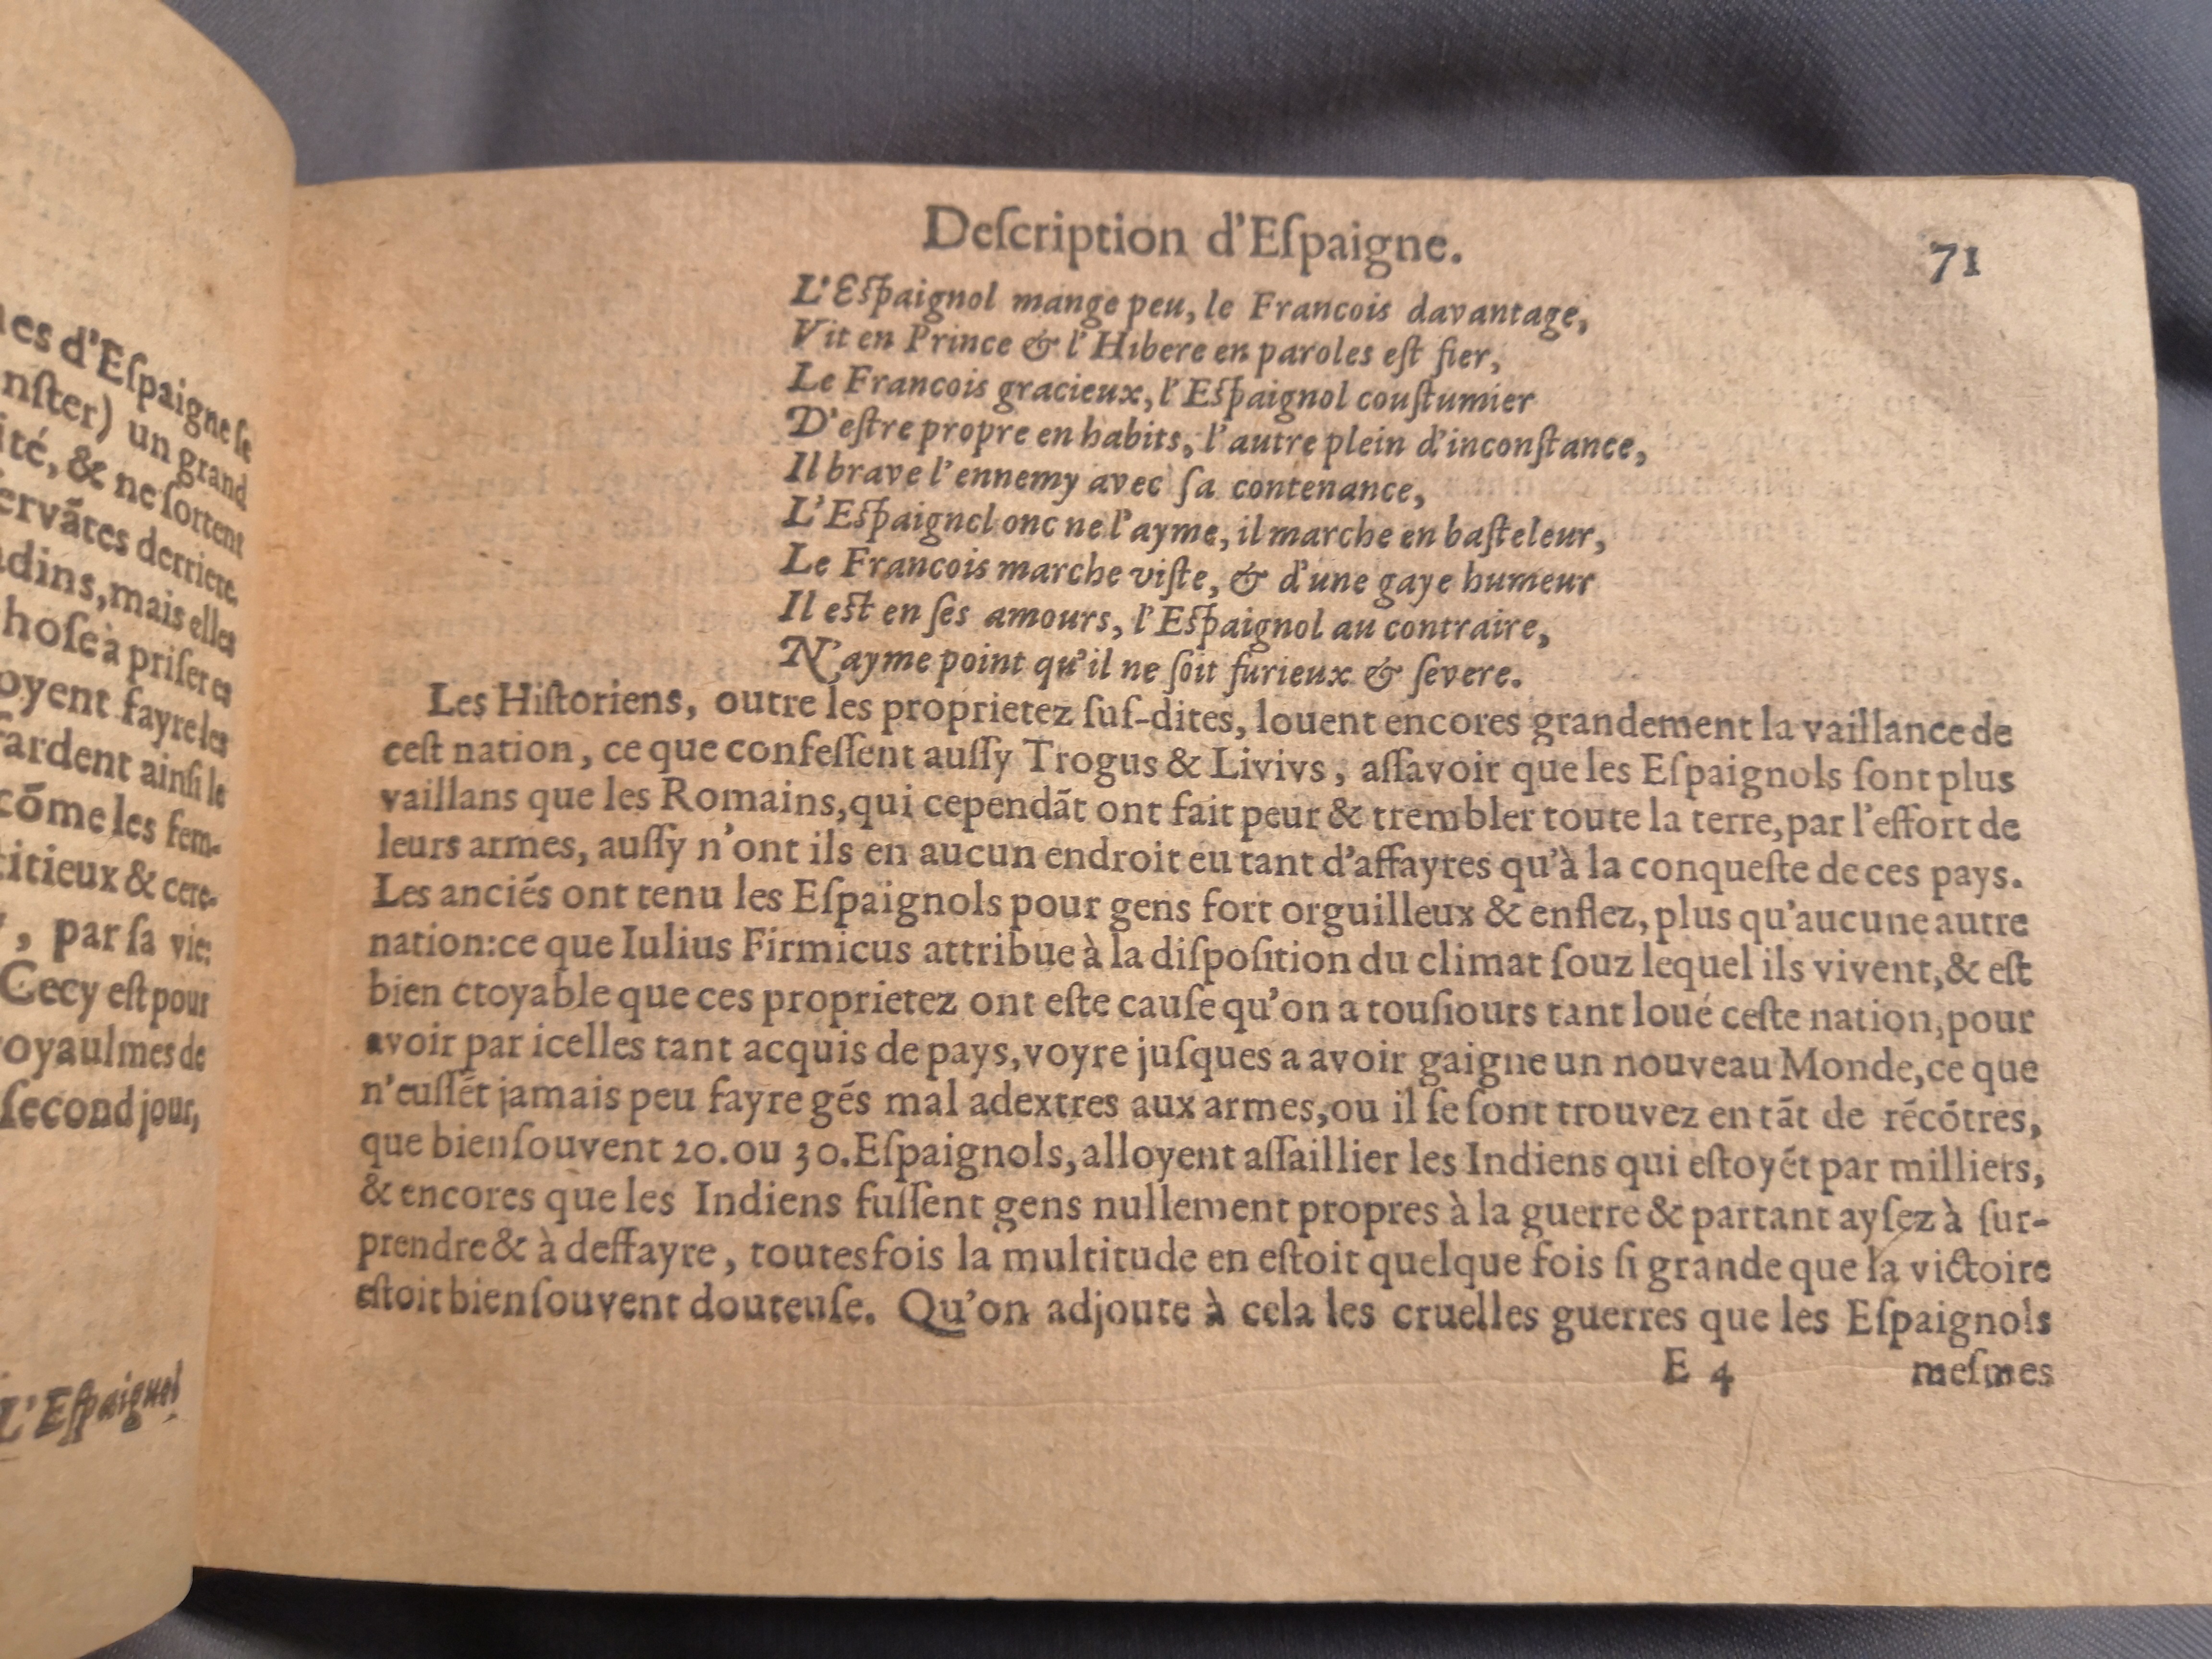 es d'Eſpaigne ſe
nſter) un grand
ité, & ne ſortent
ervãtes derriere.
dins, mais elles
hoſe à priſer es
oyent fayre les
ardent ainſi le
cõme les fem-
titieux & cere-
, par ſa vie:
Cecy eſt pour
oyaulmes de
ſecond jour,
L'Eſpaignol
Deſcription d'Eſpaigne.
71
L'Eſpaignol mange peu, le Francois davantage,
Vit en Prince & l'Hibere en paroles eſt fier,
Le Francois gracieux, l'Eſpaignol couſtumier
D'eſtre propre en habits, l'autre plein d'inconſtance,
Il brave l'ennemy avec ſa contenance,
L'Eſpaigncl onc ne l'ayme, il marche en baſteleur,
Le Francois marche viſte, & d'une gaye humeur
Il eſt en ſes amours, l'Eſpaignol au contraire,
N'ayme point qu'il ne ſoit furieux & ſevere.
Les Hiſtoriens, outre les proprietez ſuſ-dites, louent encores grandement la vaillance de
ceſt nation, ce que confeſſent auſſy Trogus & Livivs, aſſavoir que les Eſpaignols ſont plus
vaillans que les Romains, qui cependãt ont fait peur & trembler toute la terre, par l'effort de
leurs armes, auſſy n'ont ils en aucun endroit eu tant d'affayres qu'à la conqueſte de ces pays.
Les anciés ont tenu les Eſpaignols pour gens fort orguilleux & enflez, plus qu'aucune autre
nation: ce que Iulius Firmicus attribue à la diſpoſition du climat ſouz lequel ils vivent, & eſt
bien ctoyable que ces proprietez ont eſte cauſe qu'on a touſiours tant loué ceſte nation, pour
avoir par icelles tant acquis de pays, voyre juſques a avoir gaigne un nouveau Monde, ce que
n'euſſét jamais peu fayre gés mal adextres aux armes, ou il ſe ſont trouvez en tãt de récõtres,
que bien ſouvent 20. ou 30. Eſpaignols, alloyent aſſaillier les Indiens qui eſtoyét par milliers,
& encores que les Indiens fuſſent gens nullement propres à la guerre & partant ayſez à ſur-
prendre & à deffayre, toutesfois la multitude en eſtoit quelque fois ſi grande que la victoire
eſtoit bien ſouvent douteuſe. Qu'on adjoute à cela les cruelles guerres que les Eſpaignols
E 4
meſmes